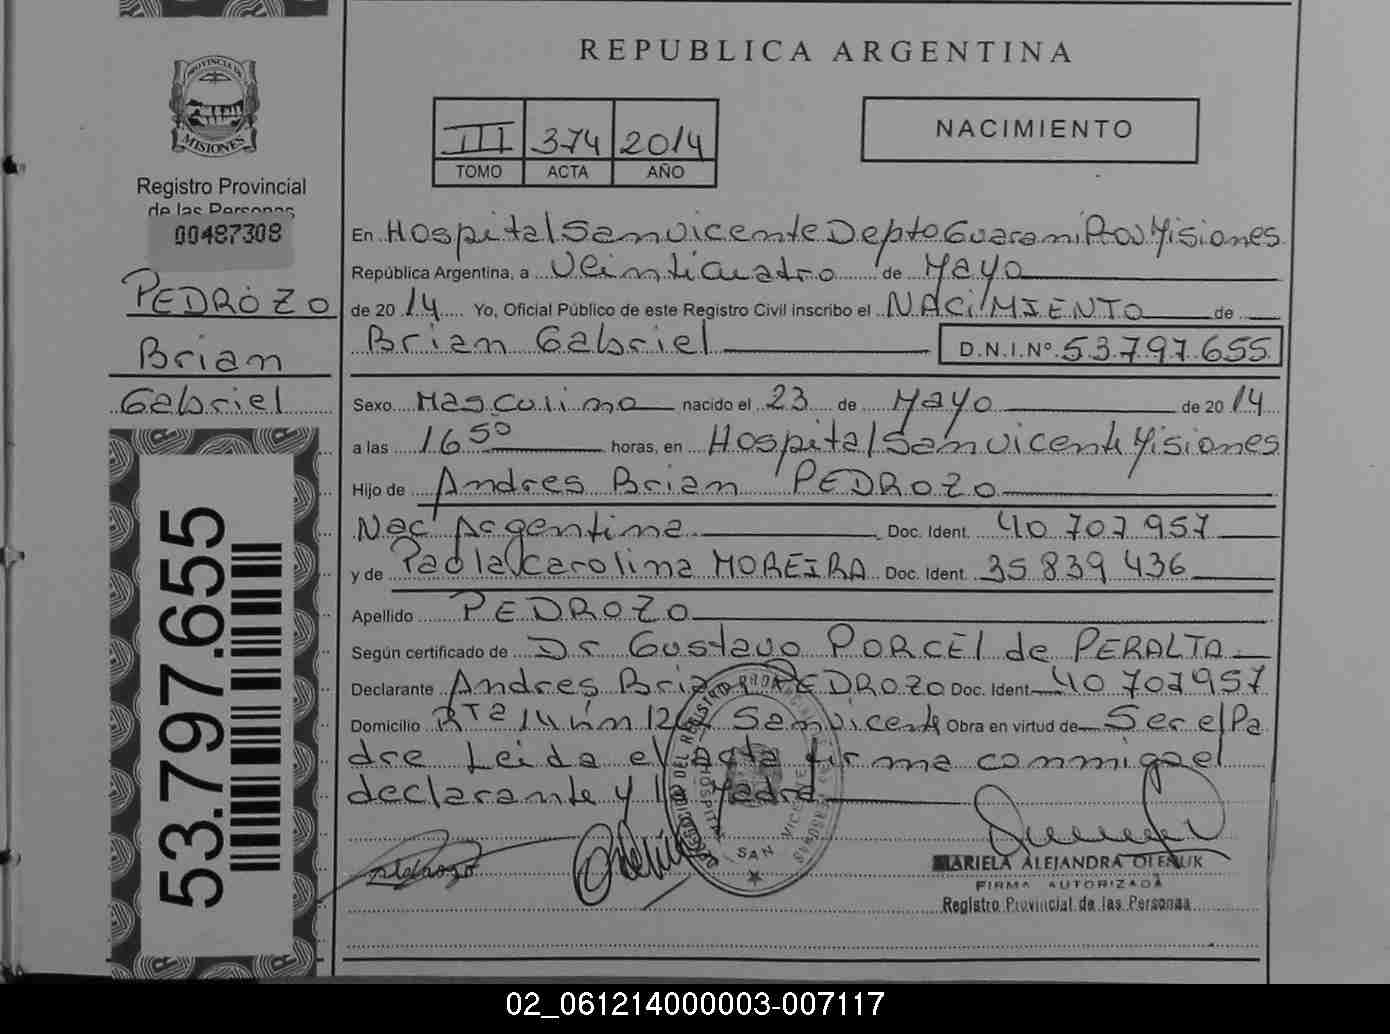 PROVINCIA DE
MISIONES
Registro Provincial
de las Personas
00487308
PEDROZO
Brian
Gabriel
53.797.655
REPUBLICA ARGENTINA
III 374 2014
TOMO ACTA AÑO
NACIMIENTO
En Hospital San vicente Depto Guarani Prov Misiones
República Argentina, a Veinticuatro de Mayo
de 2014 Yo, Oficial Público de este Registro Civil inscribo el NACIMIENTO de
Brian Gabriel D.N.I.Nº 53.797.655
Sexo Masculino nacido el 23 de Mayo de 2014
a las 16 50 horas, en Hospital San vicente Misiones
Hijo de Andres Brian PEDROZO
Nac Argentina Doc. Ident. 40 707 957
y de Paola Carolina MOREIRA Doc. Ident. 35 839 436
Apellido PEDROZO
Según certificado de Dr Gustavo PORCEL de PERALTA
Declarante Andres Brian PEDROZO Doc. Ident 40 707 957
Domicilio Rta San vicente Obra en virtud de Ser el Pa
dre Leida el acta firma conmigo el
declarante y la Madre
SAN VICENTE
MARIELA ALEJANDRA OLENIUK
FIRMA AUTORIZADA
Registro Provincial de las Personas
02_061214000003-007117